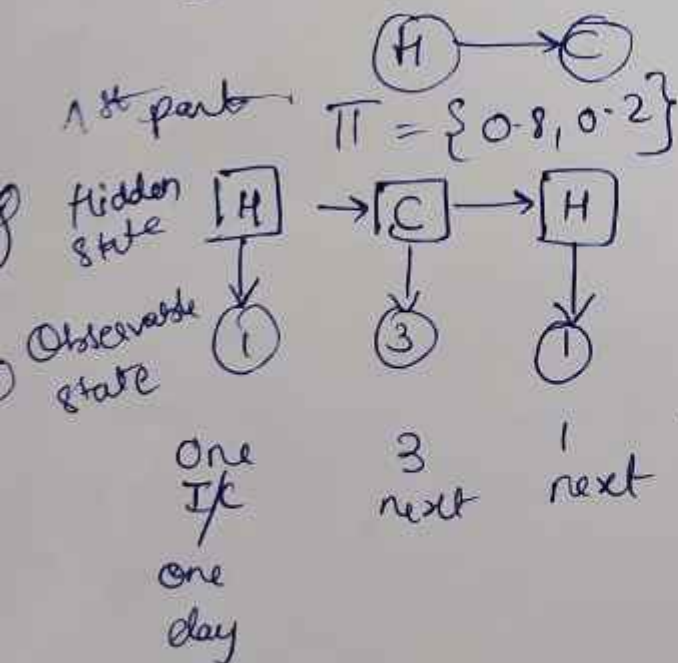 H C
1st part Π = {0.8, 0.2}
Hidden state H C H
Observable state 1 3 1
One I/C one day
3 next
1 next